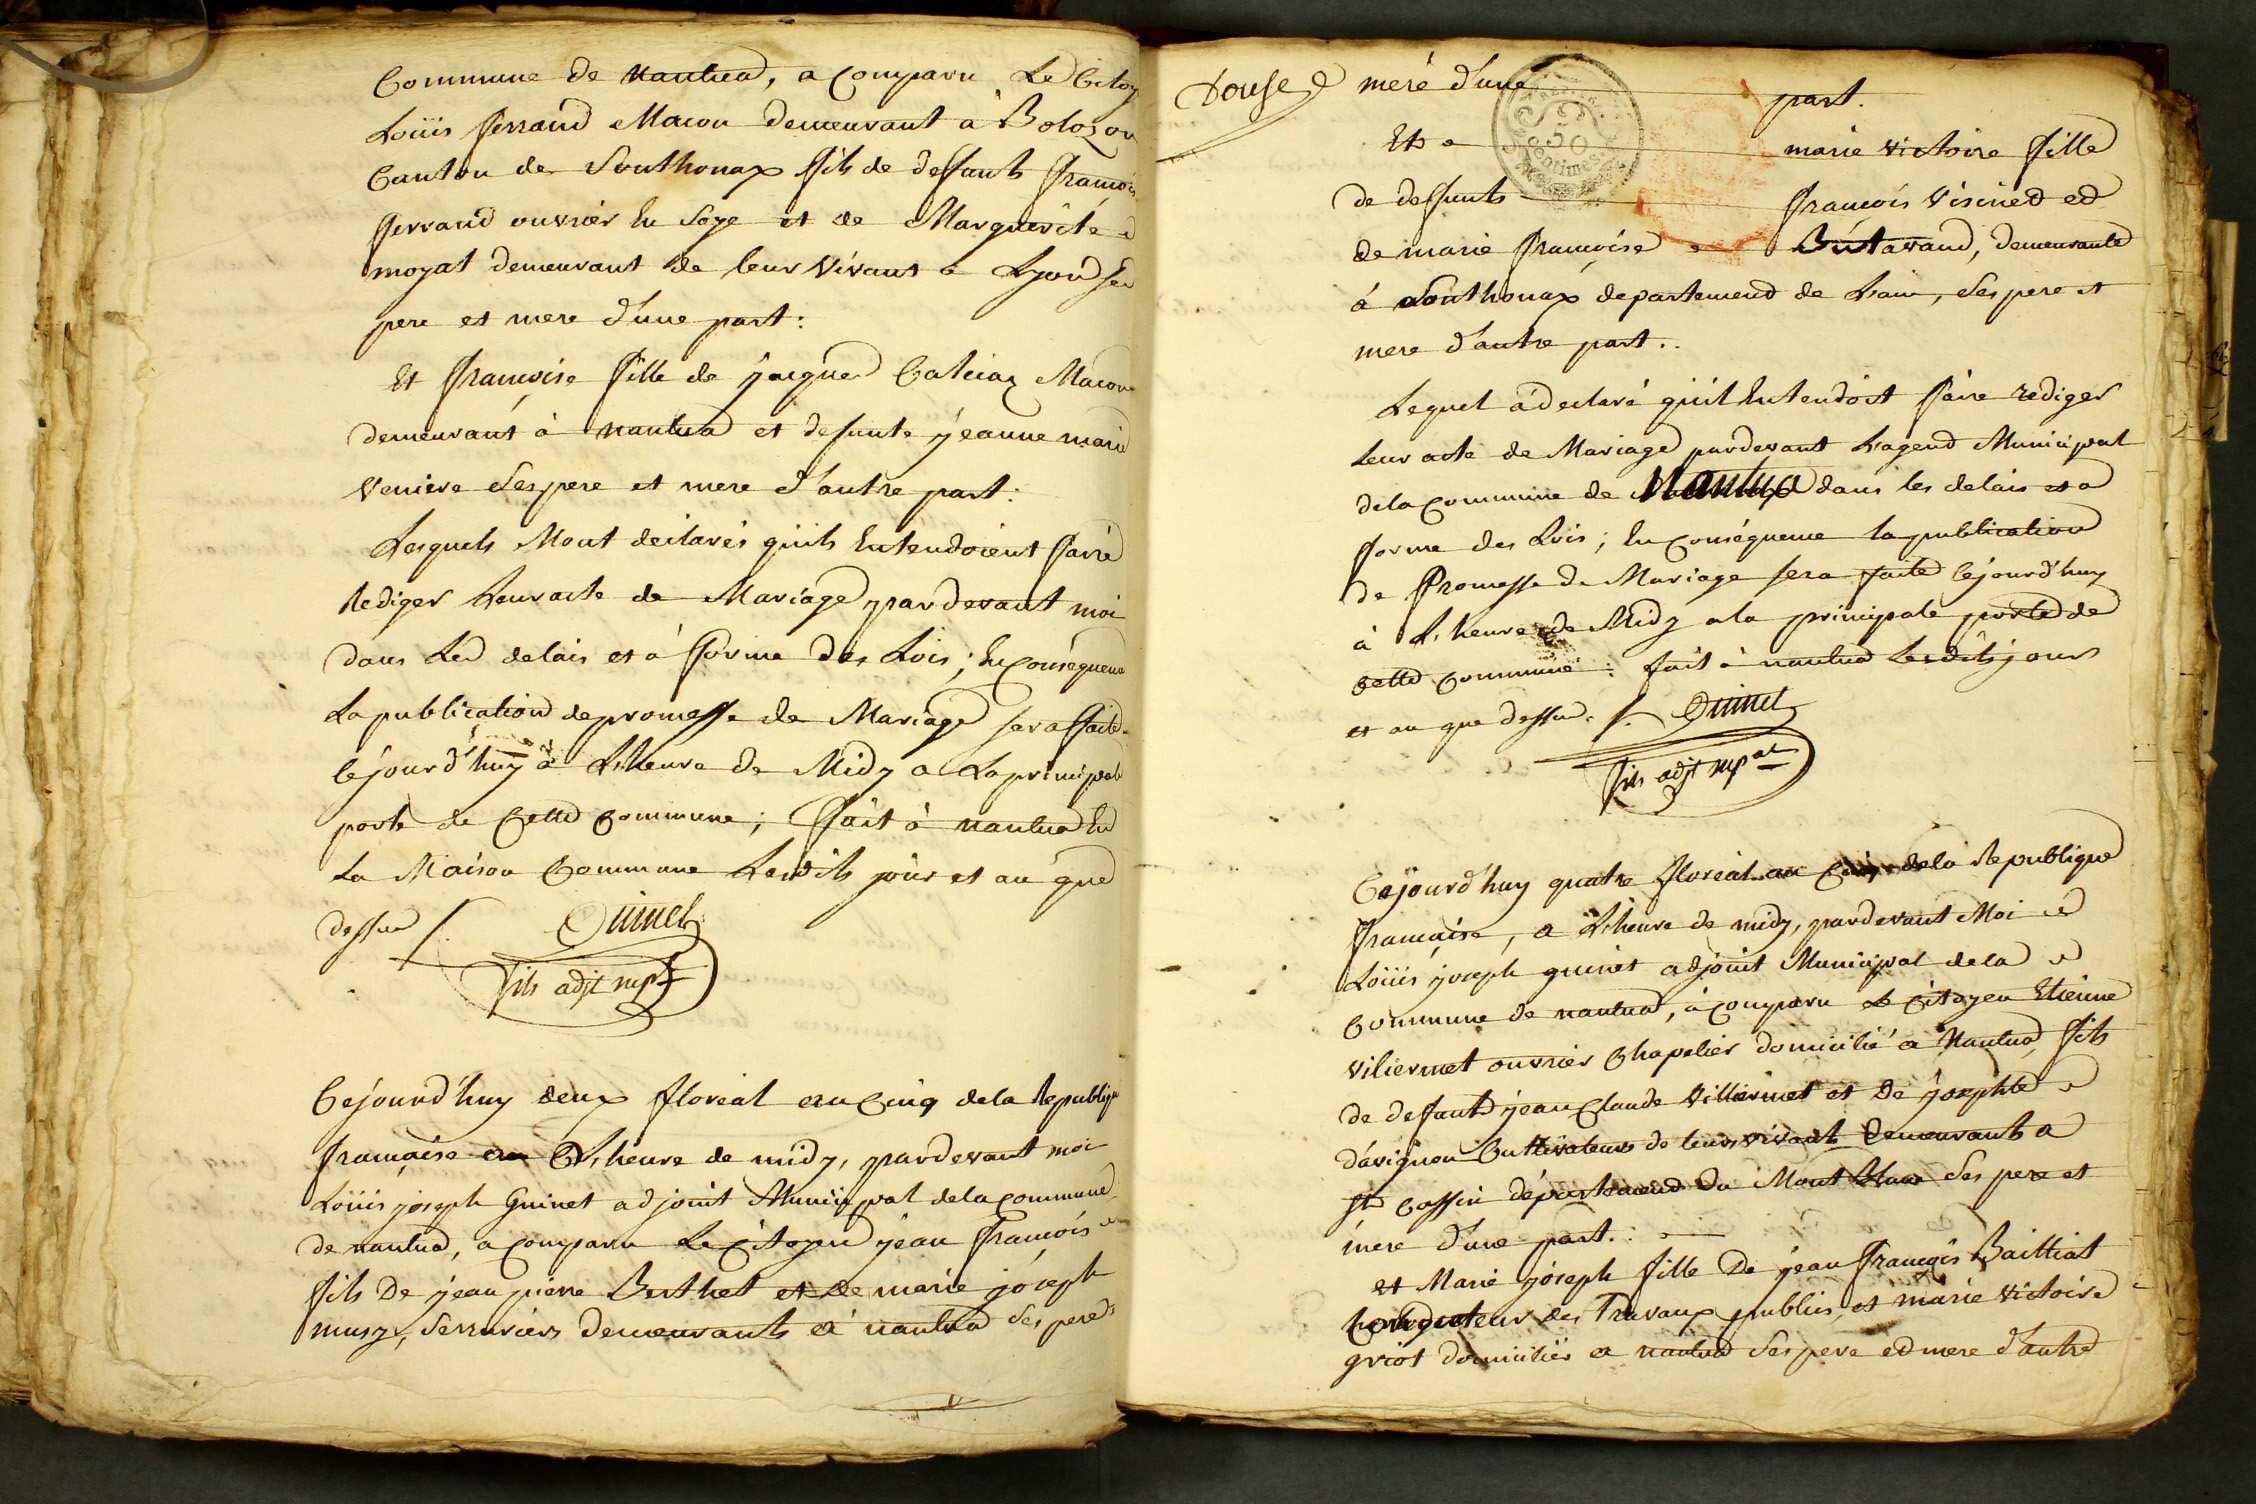 Commune de nantua, a comparu Le Citoy
Loüis ferrand Macon demeurant à Bolozon
Canton de Sonthonax fils de deffunts françois
ferrand ouvrier En Soye et de Marguerite
moyat demeurant de leur vivant a Lyon Ses
pere et mere d'une part:
Et françoise fille de jacques Macon
demeurant à nantua et defunte jeanne marie
veniere Ses pere et mere d'autre part:
Lesquels Mont déclarés quils Entendoient faire
Rediger Leur acte de Mariage pardevant moi
dans Les delais et à forme des Lois; En Conséquence
La publication de promesse de Mariage sera faite
Cejourd'huy à L'heure de Midy a La principale
porte de Cette Commune; fait à nantua En
La Maison Commune Lesdits jour et an que
dessus /. Guinet
fils adjt mpal
Cejourd'huy deux floréal an Cinq dela Republique
française à L'heure de midy, pardevant moi
Loüis joseph Guinet adjoint Municipal dela Commune
de nantua, a Comparu Le Citoyen jean françois
fils De jean pierre Berthet et de marie joseph
musy, Serruriers demeurants à nantua Ses pere
Douse
mere d'une part.
Et marie victoire fille
de deffunts françois visined ed
de marie françoise Butavand, demeurante
à Sonthonax departemend de Lain, Ses pere et
mere d'autre part..
Lequel à declaré quil Entendoit faire rediger
Leur acte de Mariage pardevant Lagend Municipal
dela Commune de Nantua dans les delais et a
forme des Lois; En Conséquence la publication
de Promesse de Mariage sera faite Cejourd'huy
à L'heure de Midy a la principale porte de
Cette Commune: fait à nantua Lesdits jours
et an que dessus. /. Guinet
fils adjt mpal
Cejourd'huy quatre floréal an Cinq dela Republique
française, a L'heure de midy, pardevant Moi
Loüis joseph guinet adjoint Municipal dela
Commune de nantua, à comparu Le Citoyen Etienne
viliermet ouvrier Chapelier domicilié a Nantua, fils
de defunt jean Claude Villiermet et De josephte
d'avignon Cultivateurs de leurs vivants demeurants a
St Cassin département du Mont Blanc Ses pere et
mere d'une part.:
et Marie joseph fille De jean françois Bailliat
Conducteur des Travaux publics, et marie victoire
griot domiciliés a nantua Ses pere ed mere d'autre
50
Centimes